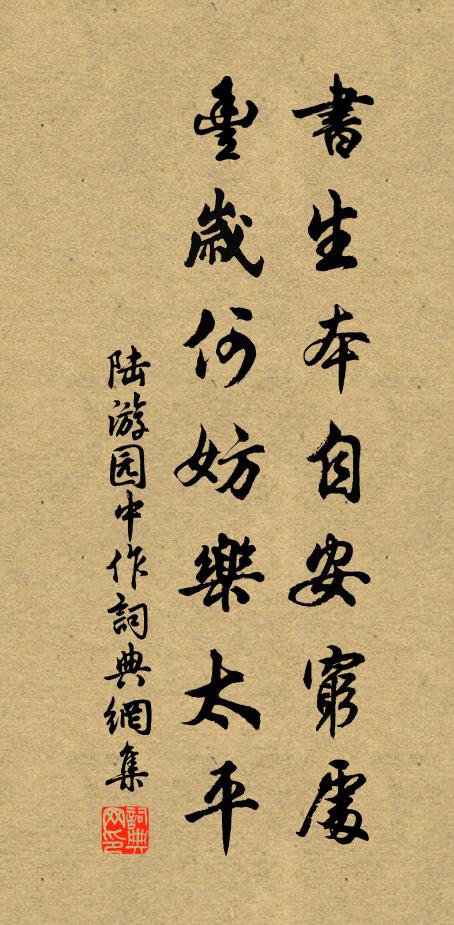 書生本自安窮處
豐歲何妨樂太平
陆游园中作詞典網集
詞典网印